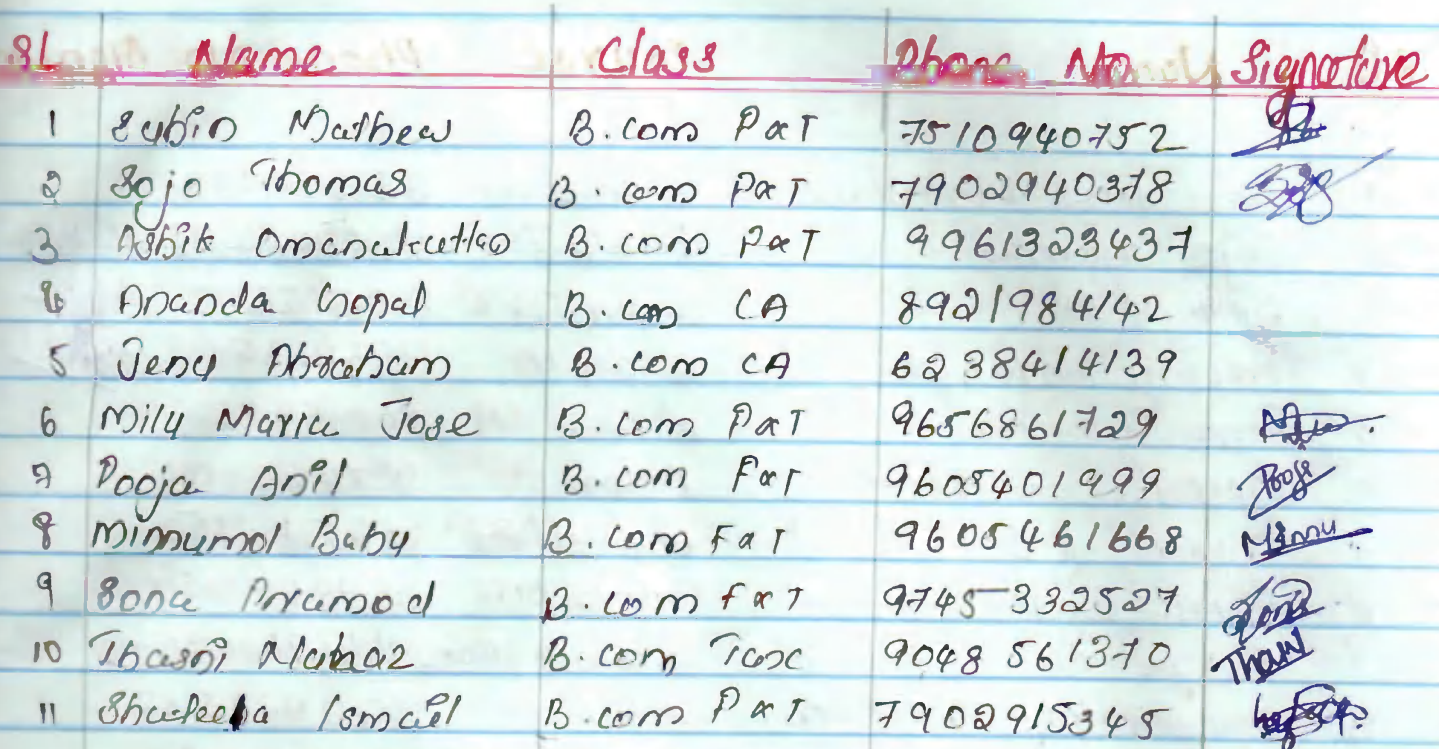 SL Name Class Phone No Signature
1 Eubin Mathew B.com P&T 7510940752
2 Sojo Thomas B.com P&T 7902940378 Sojo
3 Ashik Omanakuttan B.com P&T 9961323437
4 Ananda Gopal B.com CA 8921984142
5 Jenu Abraham B.com CA 6238414139
6 Mily Maria Jose B.com P&T 9656861729
7 Pooja Anil B.com F&T 9605401999 Pooja
8 Minnumol Baby B.com F&T 9605461668 Minnu
9 Sona Pramod B.com F&T 9745332527 Sona
10 Thasni B.com Tax 9048561370
11 Ismail B.com P&T 7902915345